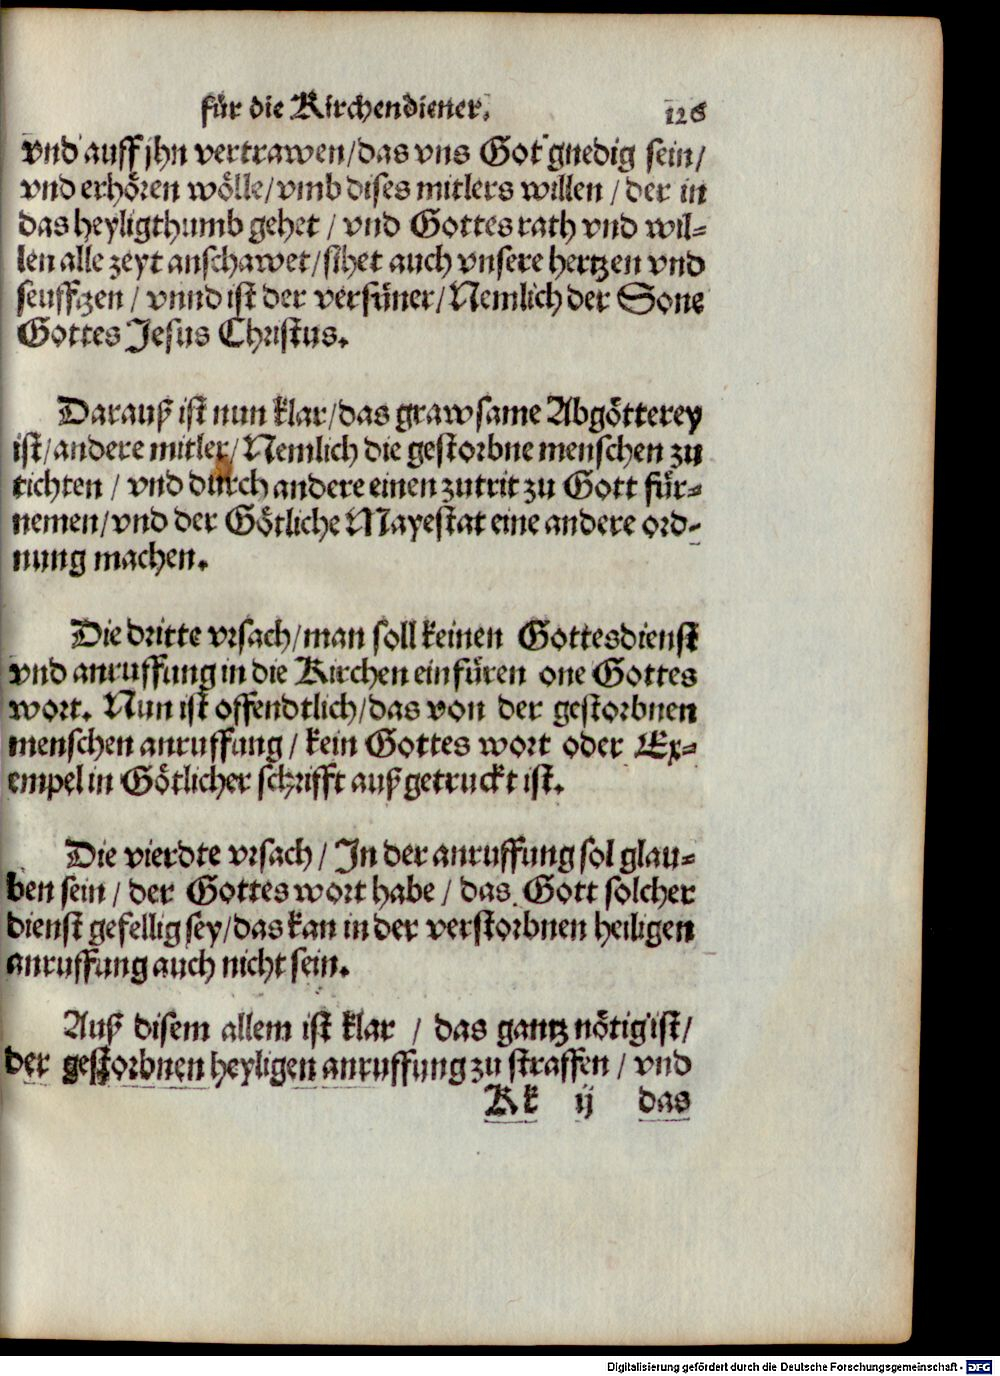 für die Kirchendiener. 126
vnd auff jhn vertrawen/das vns Got gnedig sein/
vnd erhören wölle/vmb dises mitlers willen / der in
das heyligthumb gehet / vnd Gottes rath vnd wil=
len alle zeyt anschawet/sihet auch vnsere hertzen vnd
seufftzen / vnnd ist der versüner/Nemlich der Sone
Gottes Jesus Christus.
Darauß ist nun klar/das grawsame Abgötterey
ist/andere mitler/Nemlich die gestorbne menschen zu
tichten / vnd durch andere einen zutrit zu Gott für=
nemen/vnd der Götliche Mayestat eine andere ord-
nung machen.
Die dritte vrsach/man soll keinen Gottesdienst
vnd anruffung in die Kirchen einfüren one Gottes
wort. Nun ist offendtlich/das von der gestorbnen
menschen anruffung / kein Gottes wort oder Ex=
empel in Götlicher schrifft außgetruckt ist.
Die vierdte vrsach / In der anruffung sol glau=
ben sein / der Gottes wort habe / das Gott solcher
dienst gefellig sey/das kan in der verstorbnen heiligen
anruffung auch nicht sein.
Auß disem allem ist klar / das gantz nötig ist/
der gestorbnen heyligen anruffung zu straffen / vnd
Kk ij das
Digitalisierung gefördert durch die Deutsche Forschungsgemeinschaft - DFG